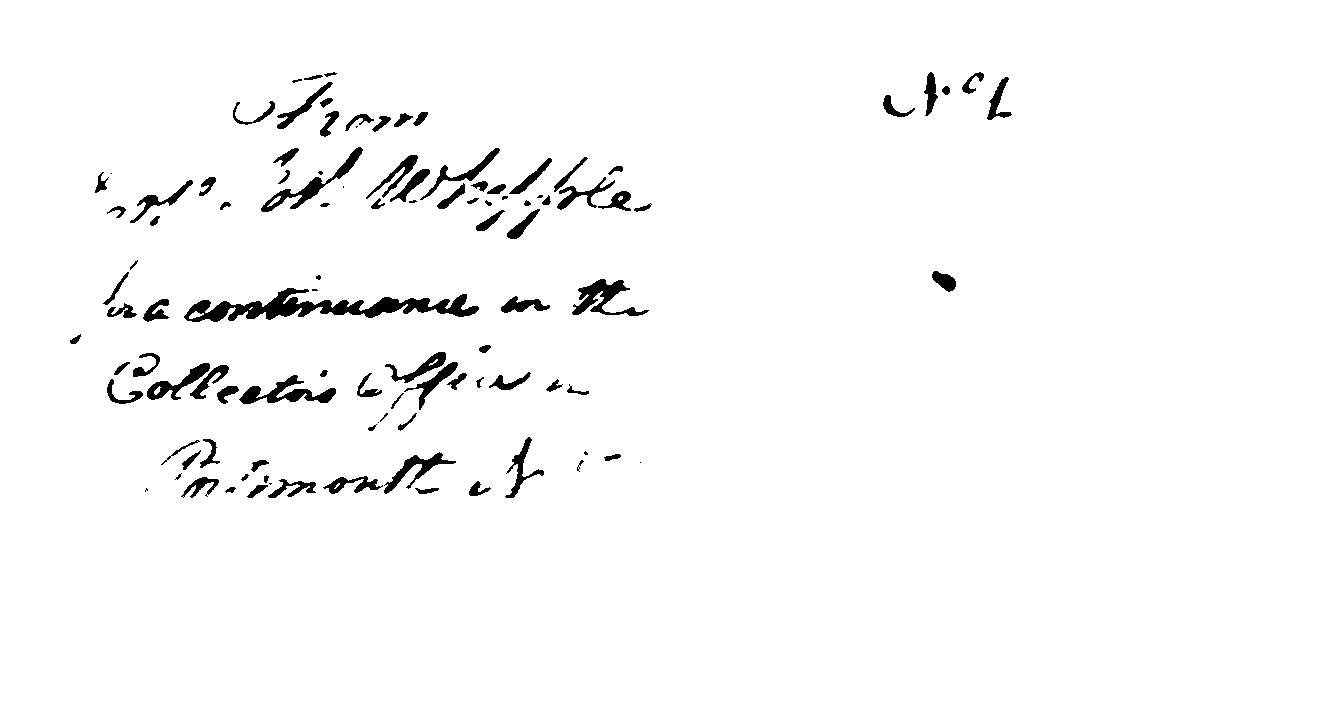 From
Capt. Jos. Whipple
for a continuance in the
Collectors Office in
Portsmouth N
No 1